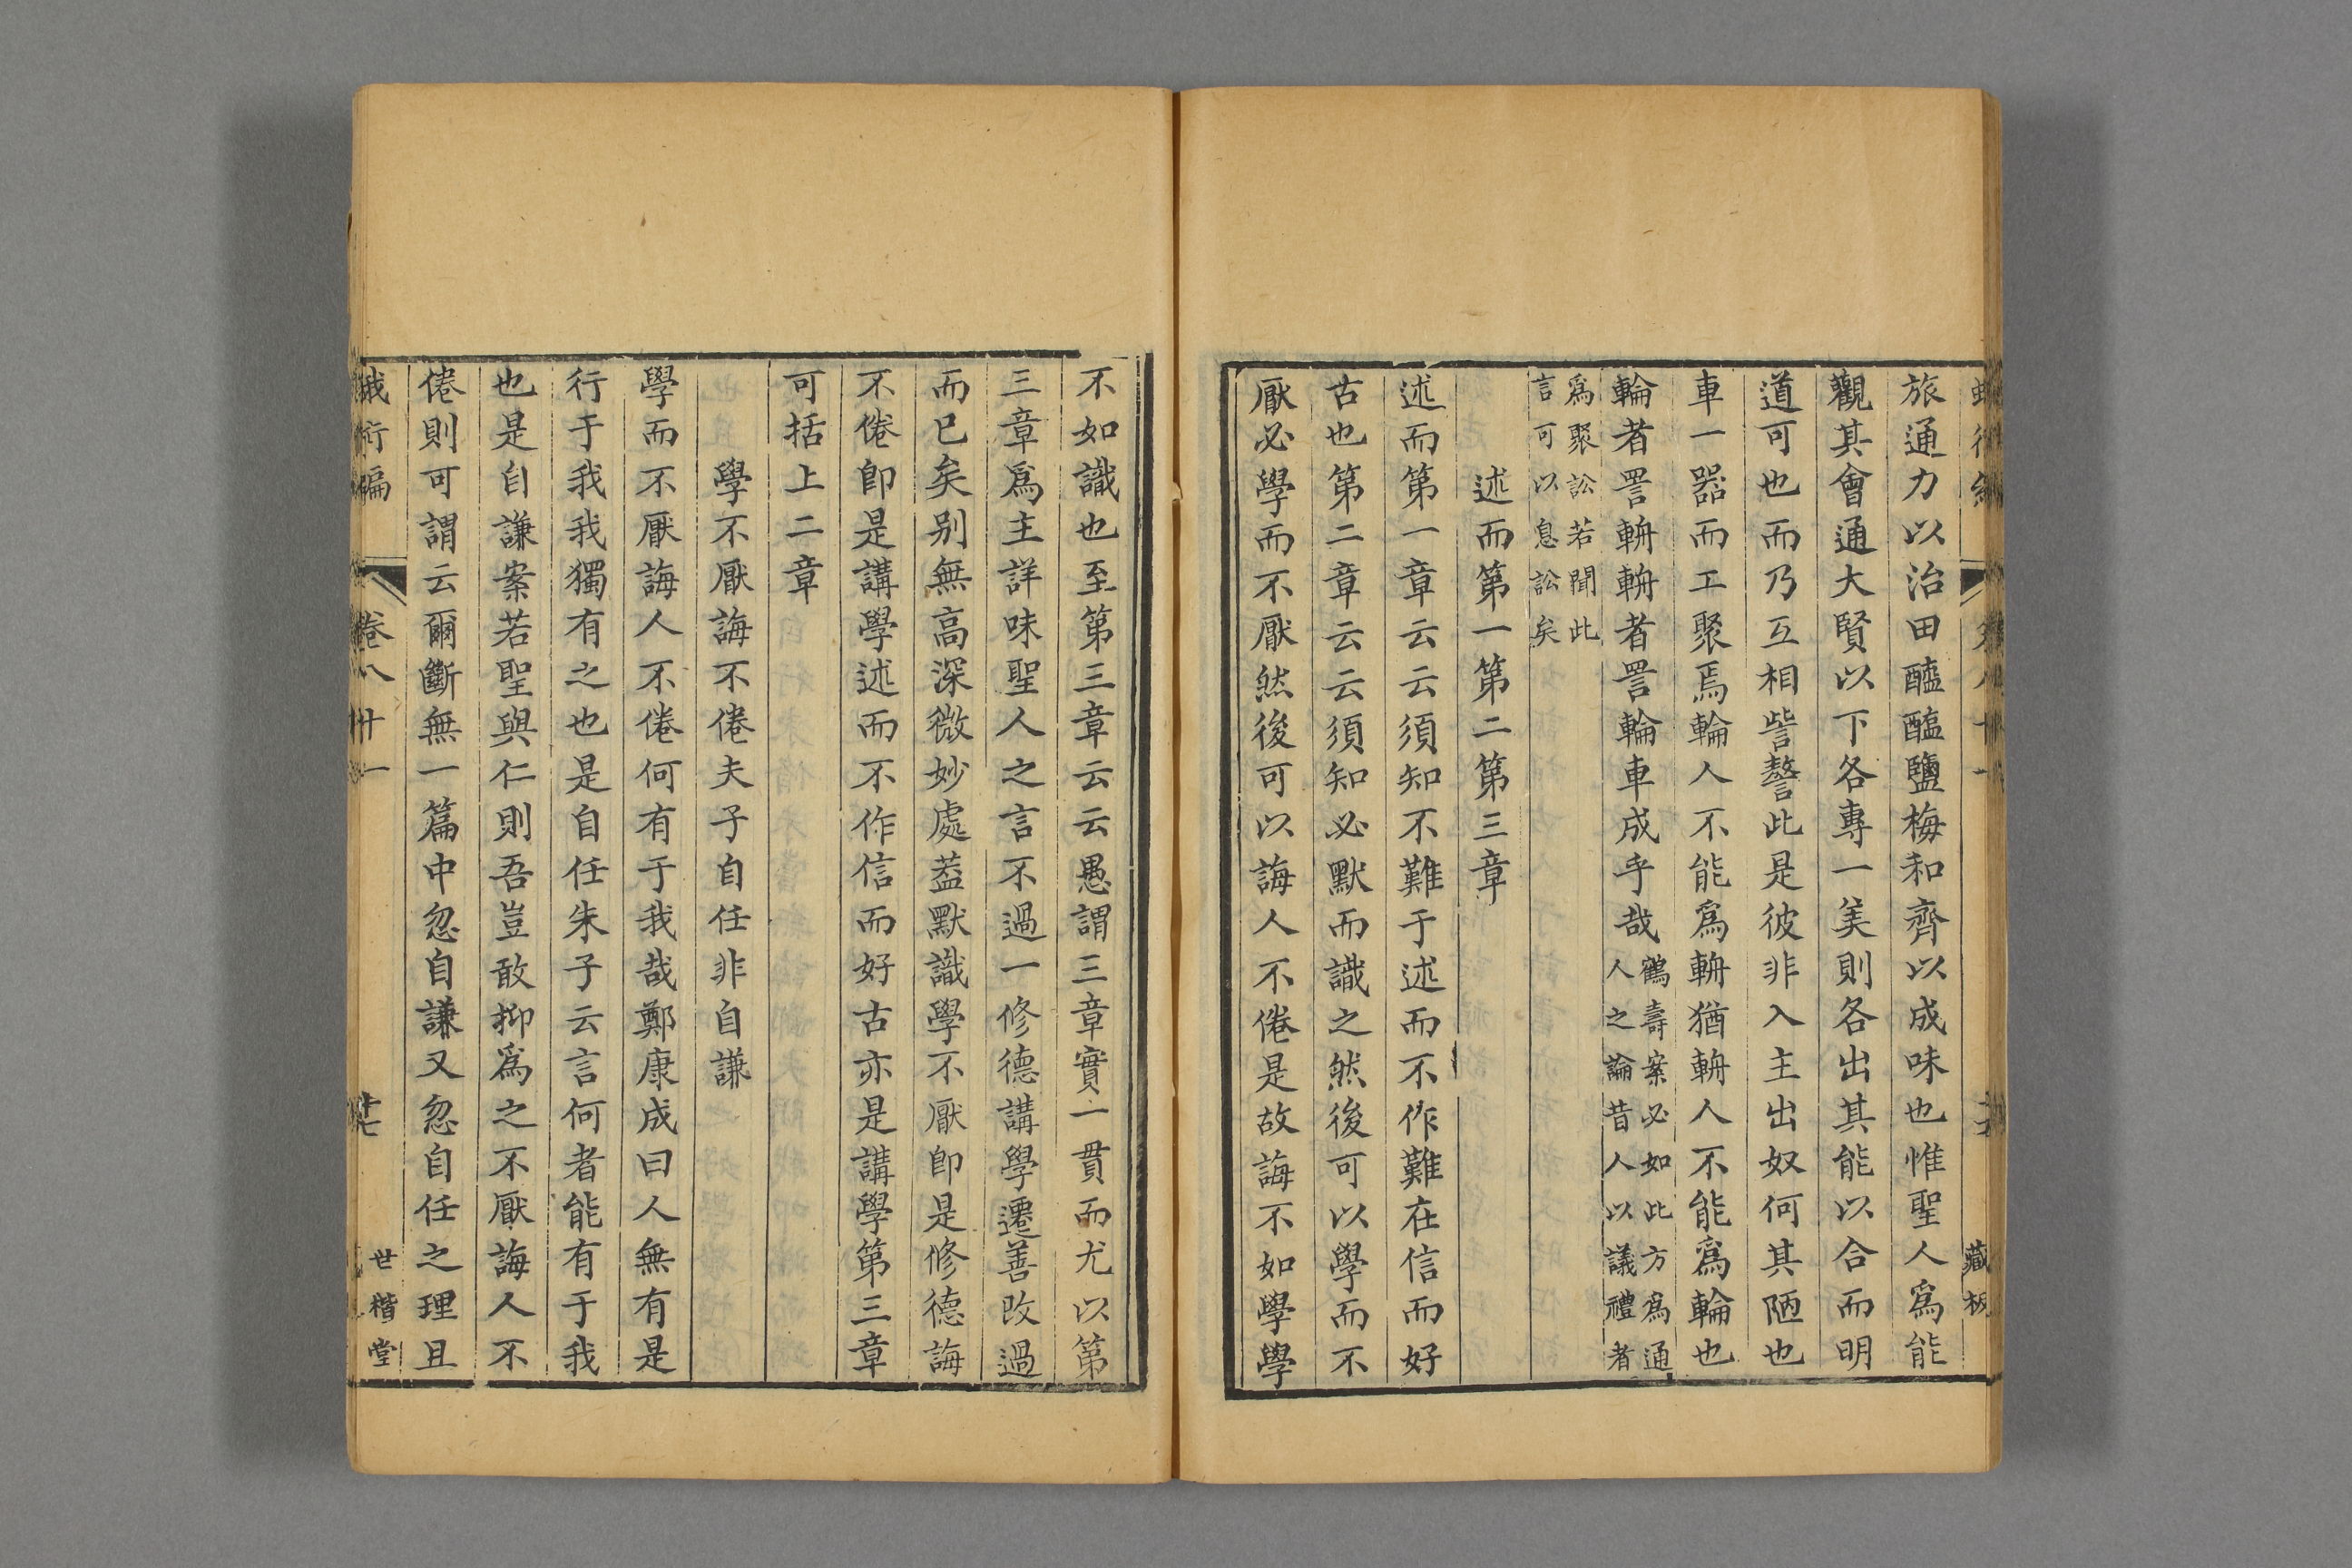 旅通力以治田醯醢鹽梅和齊以成味也惟聖人爲能
觀其會通大賢以下各專一美則各出其能以合而明
道可也而乃互相訾謷此是彼非入主出奴何其陋也
車一器而工聚焉輪人不能爲輈猶輈人不能爲輪也
輪者詈輈輈者詈輪車成乎哉
鶴壽案必如此方爲通
人之論昔人以議禮者
爲聚訟若聞此
言可以息訟矣
述而第一第二第三章
述而第一章云云須知不難于述而不作難在信而好
古也第二章云云須知必默而識之然後可以學而不
厭必學而不厭然後可以誨人不倦是故誨不如學學
不如識也至第三章云云愚謂三章實一貫而尤以第
三章爲主詳味聖人之言不過一修德講學遷善改過
而已矣别無高深微妙處葢默識學不厭卽是修德誨
不倦卽是講學述而不作信而好古亦是講學第三章
可括上二章
學不厭誨不倦夫子自任非自謙
學而不厭誨人不倦何有于我哉鄭康成曰人無有是
行于我我獨有之也是自任朱子云言何者能有于我
也是自謙案若聖與仁則吾豈敢抑爲之不厭誨人不
倦則可謂云爾斷無一篇中忽自謙又忽自任之理且
蛾術編 卷八十一 十七 世楷堂
藏板